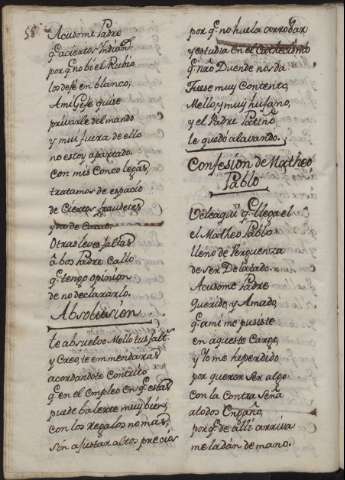 58
Acusome Padre
q. aciertos indian.
por q. no bi el Rubio
los defe en blanco,
Ami Gefe quise
privarle del mando
y mui fuera de ello
no estoy apartado.
con mis Conco legas,
tratamos de espacio
de Ciertos
y no de
Otras leves faltas
â bos Padre Callo
q. tengo opinion
de no declararlo.
Absolucion
te absuelvo Mello tus falt.
y Creo, te emmendaras
acordandote Contrito
q. en el empleo en q. estas
puede balerte muy bien,
con los regalos no mas,
sin ajustar altos precios
por q. no huela arrobar
y estudia en el
q. Duende nos da
Fuese muy Contento,
Mello, y muy hufano,
y el Padre Patiño
le quedò alavando.
Confesion de Matheo
Pablo
Veleaqui q. llega el
el Matheo Pablo
lleno de Verguenza
de ser Delatado.
Acusome Padre
querido, y Amado,
q. ami me pusiste
en aqueste Cargo,
y Yo me he perdido
por querer ser algo
con la Contra Seña
atodos Engaño,
por q. de alli arriva
me la dàn de mano.